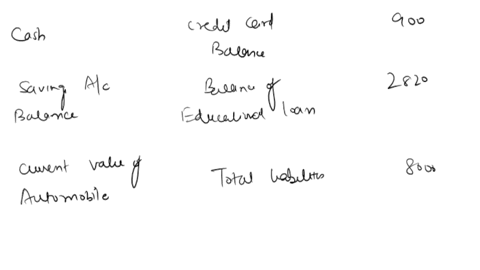 Cash Credit Card 900
Balance
Saving A/c Balance of 2820
Balance Educational loan
Current value of Total liabilities 8000
Automobile